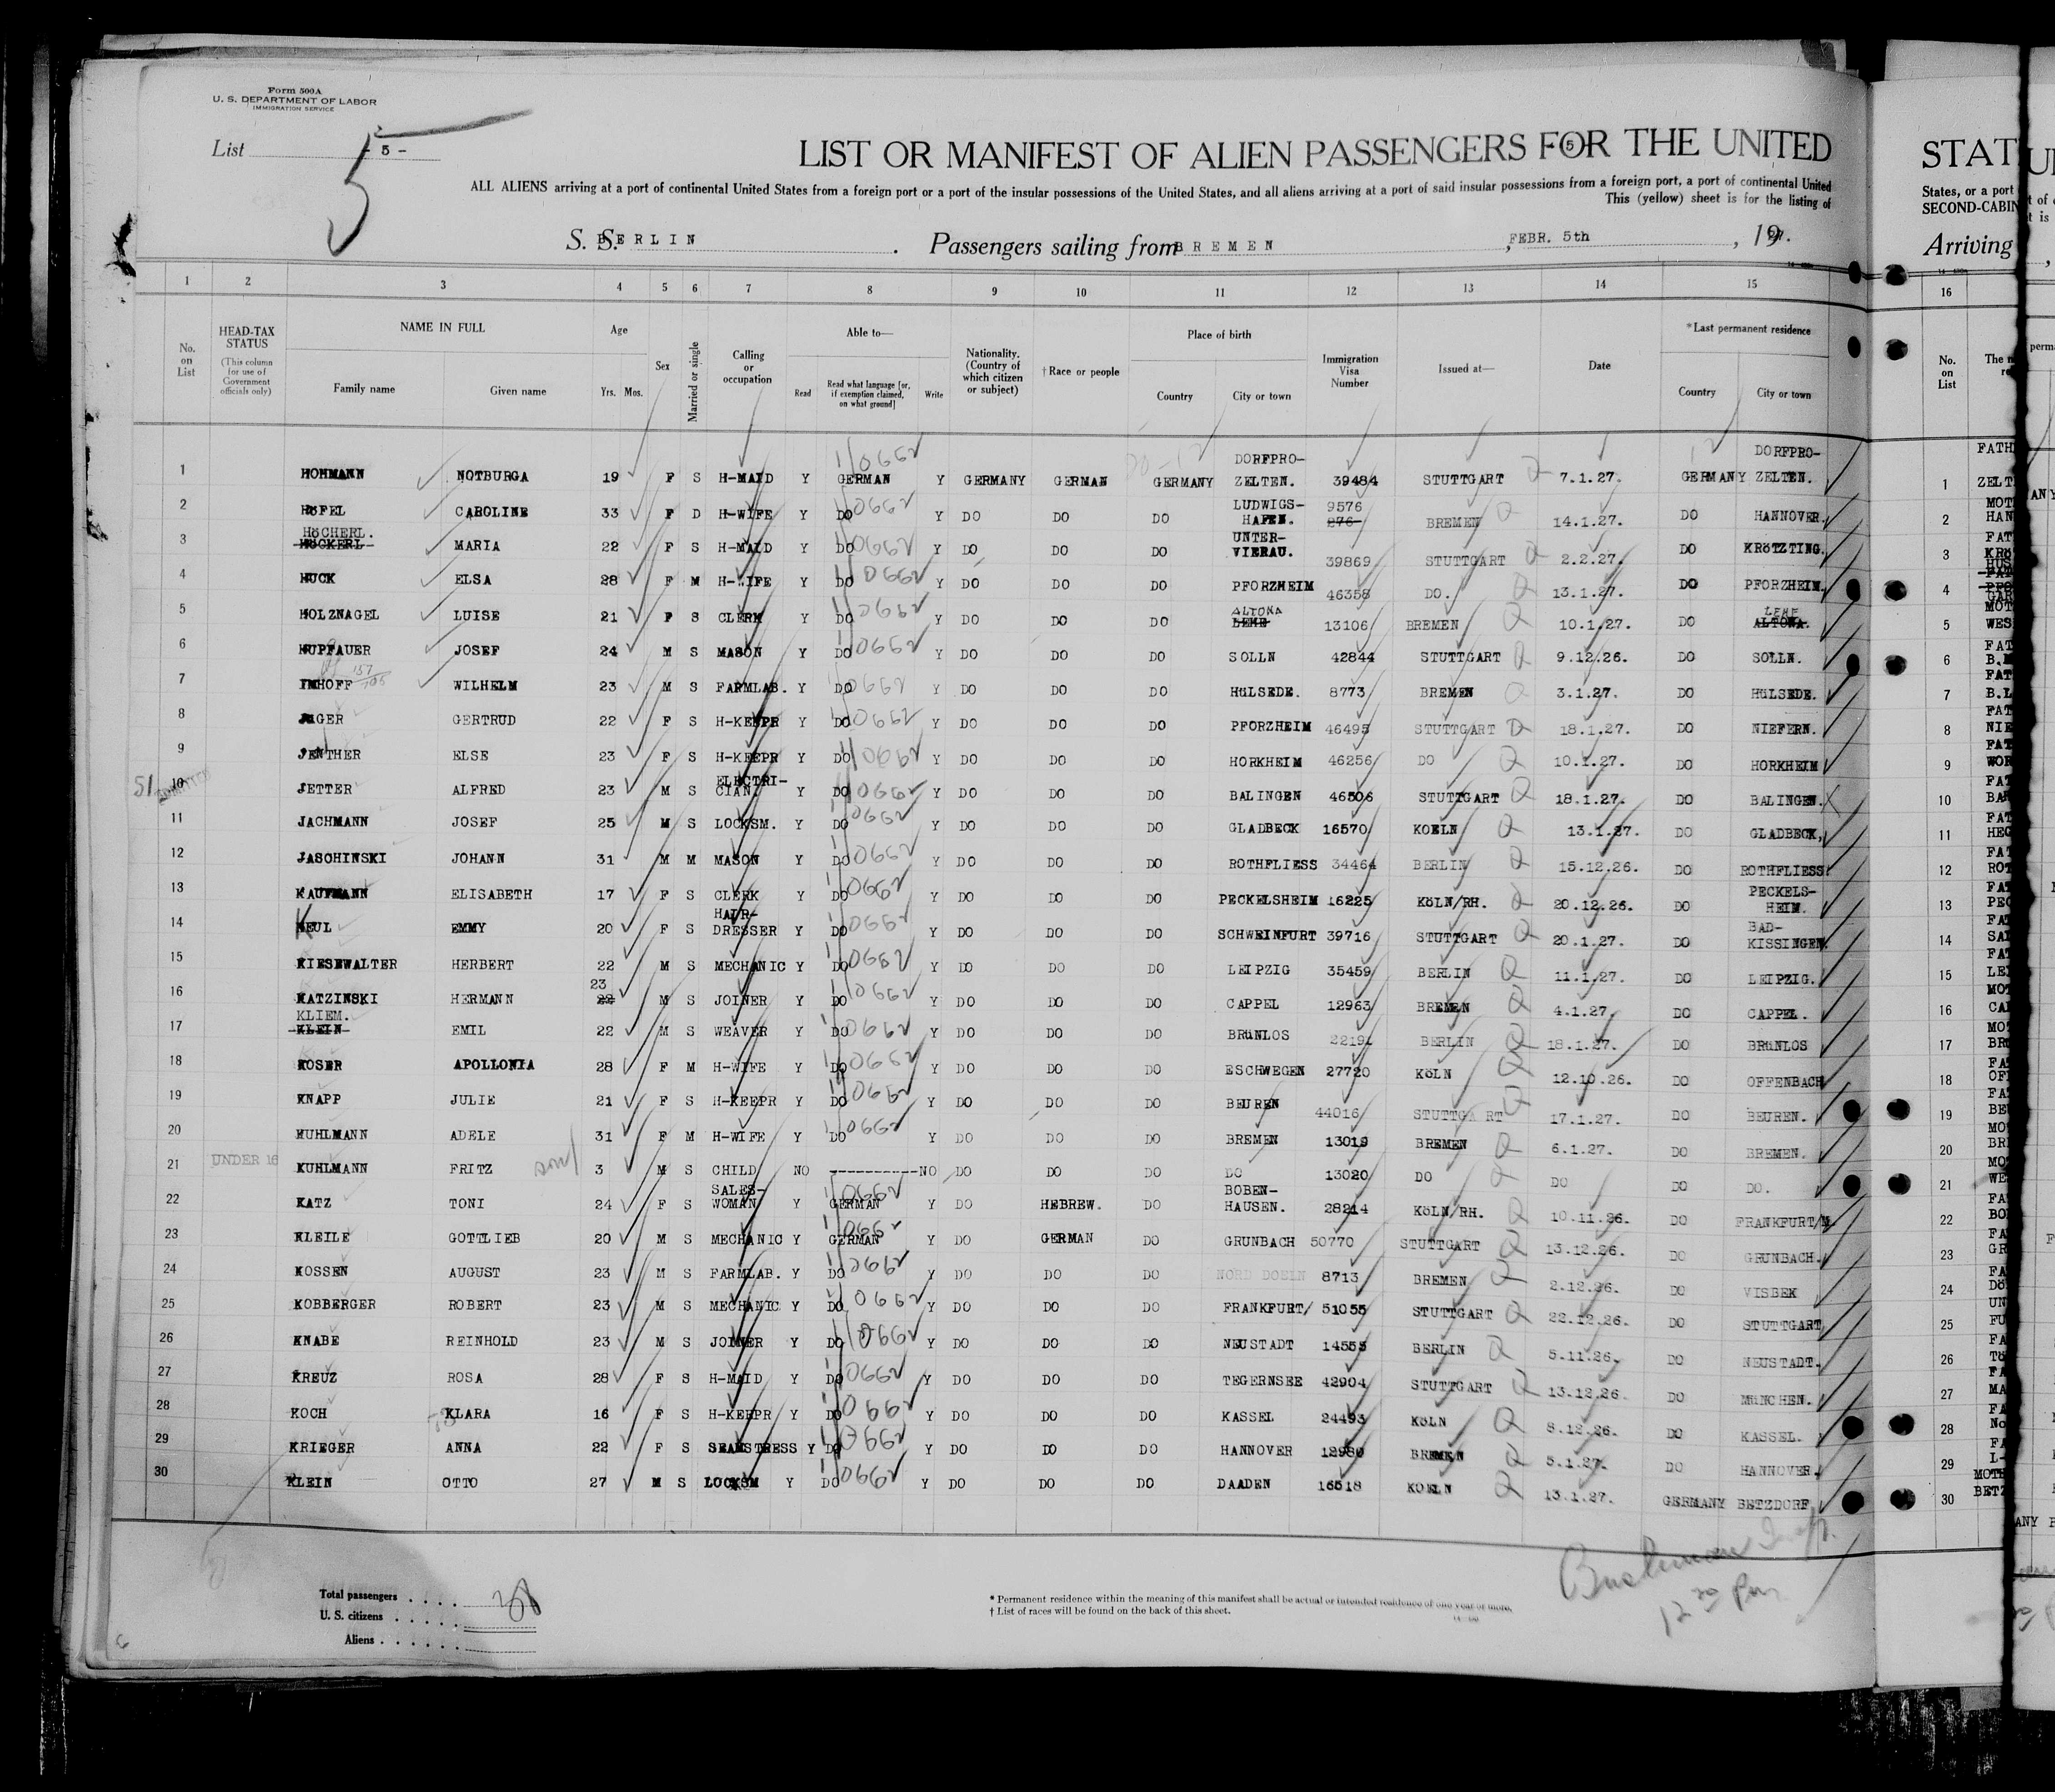 Form 500A
U. S. DEPARTMENT OF LABOR
IMMIGRATION SERVICE
List - 5 -
5
LIST OR MANIFEST OF ALIEN PASSENGERS FOR THE UNITED
ALL ALIENS arriving at a port of continental United States from a foreign port or a port of the insular possessions of the United States, and all aliens arriving at a port of said insular possessions from a foreign port, a port of continental United
This (yellow) sheet is for the listing of
S. S. BERLIN . Passengers sailing from BREMEN , FEBR. 5th , 1927.
1 2 3 4 5 6 7 8 9 10 11 12 13 14 15
No. on List
HEAD-TAX STATUS (This column for use of Government officials only)
NAME IN FULL Family name Given name
Age Yrs. Mos.
Sex
Married or single
Calling or occupation
Able to— Read Read what language [or, if exemption claimed, on what ground] Write
Nationality. (Country of which citizen or subject)
†Race or people
Place of birth Country City or town
Immigration Visa Number
Issued at—
Date
*Last permanent residence Country City or town
1 HOHMANN NOTBURGA 19 F S H-MAID Y GERMAN Y GERMANY GERMAN GERMANY DORFPRO-ZELTEN. 39484 STUTTGART 7.1.27. GERMANY DORFPRO-ZELTEN.
2 HöFEL CAROLINE 33 F D H-WIFE Y DO Y DO DO DO LUDWIGS-HAFEN. 9576 876 BREMEN 14.1.27. DO HANNOVER.
3 HöCHERL. HöCKERL MARIA 22 F S H-MAID Y DO Y DO DO DO UNTER-VIERAU. 39869 STUTTGART 2.2.27. DO KRöTZTING.
4 HUCK ELSA 28 F M H-WIFE Y DO Y DO DO DO PFORZHEIM 46358 DO. 13.1.27. DO PFORZHEIM.
5 HOLZNAGEL LUISE 21 F S CLERK Y DO Y DO DO DO ALTONA LEHE 13106 BREMEN 10.1.27. DO LEHE ALTONA.
6 HUPFAUER JOSEF 24 M S MASON Y DO Y DO DO DO SOLLN 42844 STUTTGART 9.12.26. DO SOLLN.
7 IMHOFF WILHELM 23 M S FARMLAB. Y DO Y DO DO DO HüLSEDE. 8773 BREMEN 3.1.27. DO HüLSEDE.
8 JäGER GERTRUD 22 F S H-KEEPR Y DO Y DO DO DO PFORZHEIM 46495 STUTTGART 18.1.27. DO NIEFERN.
9 JENTHER ELSE 23 F S H-KEEPR Y DO Y DO DO DO HORKHEIM 46256 DO 10.1.27. DO HORKHEIM
10 JETTER ALFRED 23 M S ELECTRI-CIAN Y DO Y DO DO DO BALINGEN 46506 STUTTGART 18.1.27. DO BALINGEN.
11 JACHMANN JOSEF 25 M S LOCKSM. Y DO Y DO DO DO GLADBECK 16570 KOELN 13.1.27. DO GLADBECK,
12 JASCHINSKI JOHANN 31 M M MASON Y DO Y DO DO DO ROTHFLIESS 34464 BERLIN 15.12.26. DO ROTHFLIESS
13 KAUFMANN ELISABETH 17 F S CLERK Y DO Y DO DO DO PECKELSHEIM 16225 KöLN/RH. 20.12.26. DO PECKELS-HEIM.
14 KEUL EMMY 20 F S HAIR-DRESSER Y DO Y DO DO DO SCHWEINFURT 39716 STUTTGART 20.1.27. DO BAD-KISSINGEN
15 KIESEWALTER HERBERT 22 M S MECHANIC Y DO Y DO DO DO LEIPZIG 35459 BERLIN 11.1.27. DO LEIPZIG.
16 KATZINSKI HERMANN 23 22 M S JOINER Y DO Y DO DO DO CAPPEL 12963 BREMEN 4.1.27. DO CAPPEL.
17 KLIEM. KLEIN EMIL 22 M S WEAVER Y DO Y DO DO DO BRüNLOS BERLIN 18.1.27. DO BRüNLOS
18 KOSER APOLLONIA 28 F M H-WIFE Y DO Y DO DO DO ESCHWEGEN 27720 KöLN 12.10.26. DO OFFENBACH
19 KNAPP JULIE 21 F S H-KEEPR Y DO Y DO DO DO BEUREN 44016 STUTTGART 17.1.27. DO BEUREN.
20 KUHLMANN ADELE 31 F M H-WIFE Y DO Y DO DO DO BREMEN 13019 BREMEN 6.1.27. DO BREMEN.
21 UNDER 16 KUHLMANN FRITZ son 3 M S CHILD NO ---------- NO DO DO DO DO 13020 DO DO DO DO.
22 KATZ TONI 24 F S SALES-WOMAN Y GERMAN Y DO HEBREW. DO BOBEN-HAUSEN. 28214 KöLN/RH. 10.11.26. DO FRANKFURT/M.
23 KLEILE GOTTLIEB 20 M S MECHANIC Y GERMAN Y DO GERMAN DO GRUNBACH 50770 STUTTGART 13.12.26. DO GRUNBACH.
24 KOSSEN AUGUST 23 M S FARMLAB. Y DO Y DO DO DO NORD DOELN 8713 BREMEN 2.12.26. DO VISBEK
25 KOBBERGER ROBERT 23 M S MECHANIC Y DO Y DO DO DO FRANKFURT/ 51055 STUTTGART 22.12.26. DO STUTTGART
26 KNABE REINHOLD 23 M S JOINER Y DO Y DO DO DO NEUSTADT 14555 BERLIN 5.11.26. DO NEUSTADT.
27 KREUZ ROSA 28 F S H-MAID Y DO Y DO DO DO TEGERNSEE 42904 STUTTGART 13.12.26. DO MüNCHEN.
28 KOCH KLARA 16 F S H-KEEPR Y DO Y DO DO DO KASSEL 24493 KöLN 8.12.26. DO KASSEL.
29 KRIEGER ANNA 22 F S SEAMSTRESS Y DO Y DO DO DO HANNOVER 12980 BREMEN 5.1.27. DO HANNOVER.
30 KLEIN OTTO 27 M S LOCKSM Y DO Y DO DO DO DAADEN 16518 KOELN 13.1.27. GERMANY BETZDORF
Total passengers . . . .
U. S. citizens . . . . .
Aliens . . . . . .
* Permanent residence within the meaning of this manifest shall be actual or intended residence of one year or more.
† List of races will be found on the back of this sheet.
STAT
States, or a port
SECOND-CABIN
Arriving
16
No. on List